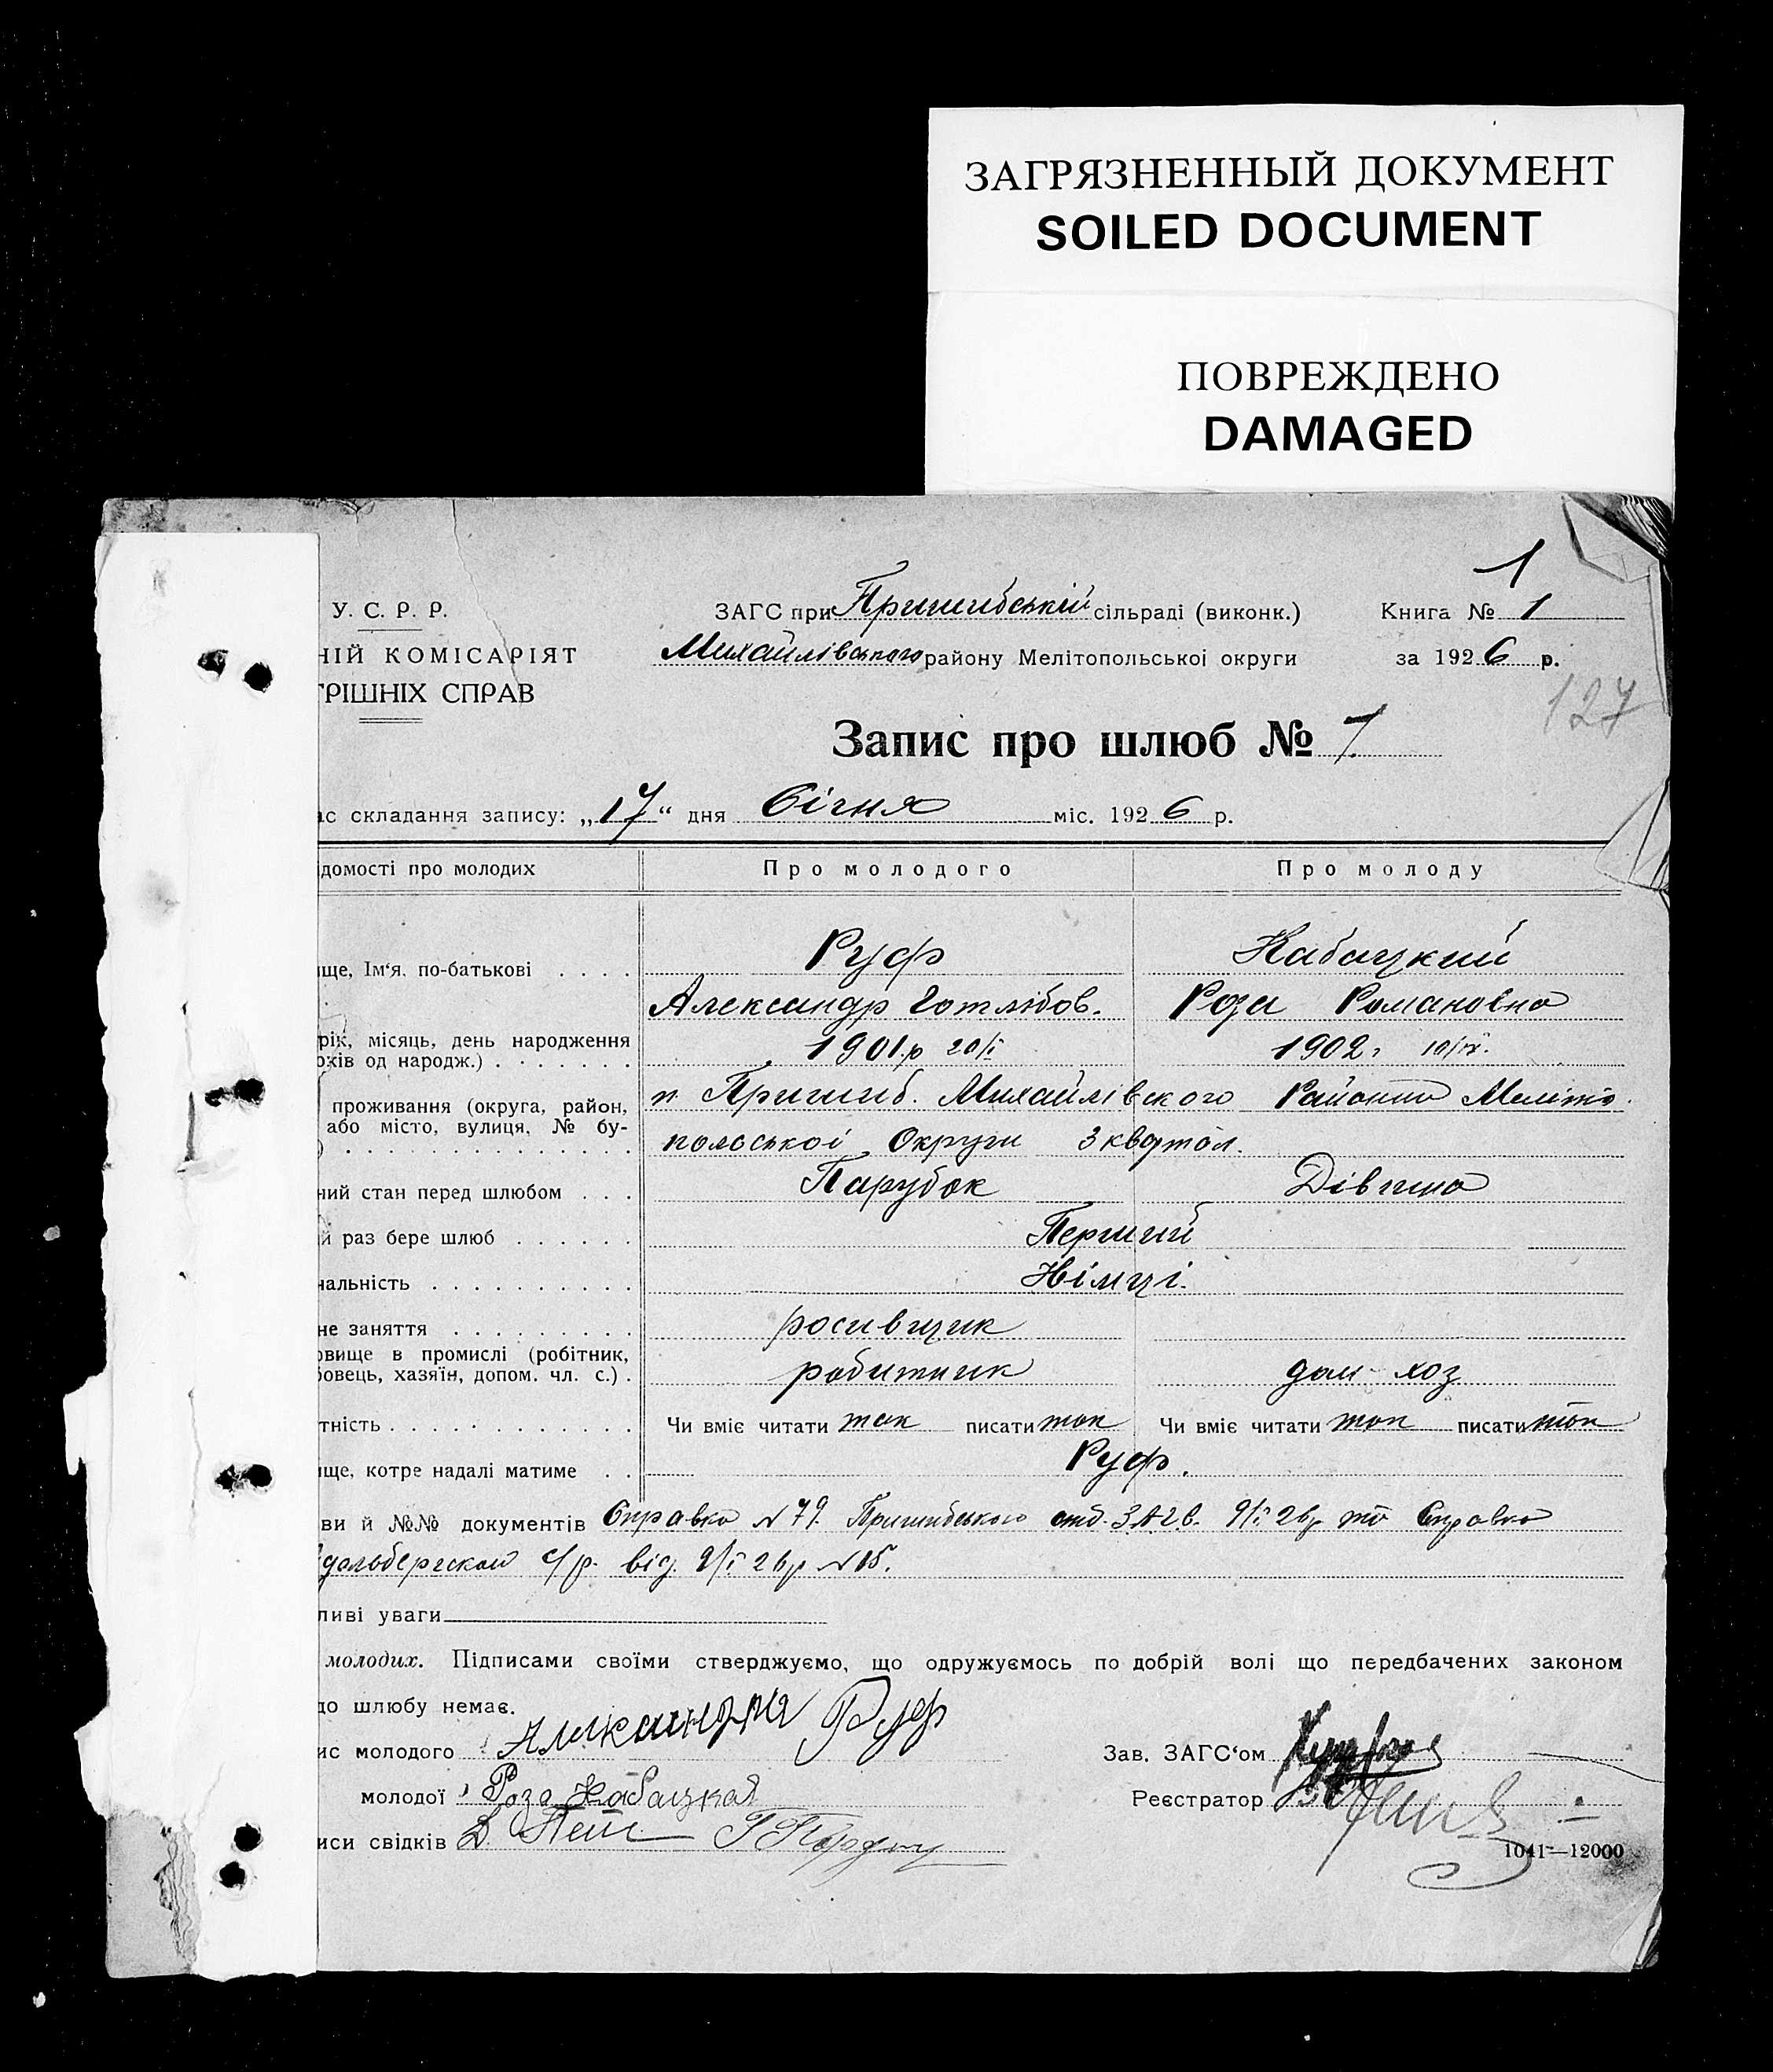 ЗАГРЯЗНЕННЫЙ ДОКУМЕНТ
SOILED DOCUMENT
ПОВРЕЖДЕНО
DAMAGED
1
У. С. Р. Р.
ЗАГС при Пришибській сільраді (виконк.)
Книга № 1
НІЙ КОМІСАРІЯТ
Михайлівського району Мелітопольської округи
за 1926 р.
ТРІШНІХ СПРАВ
127
Запис про шлюб № 7.
ас складання запису: „17“ дня Січня міс. 1926 р.
ідомості про молодих
Про молодого
Про молоду
Руф
Кабацкий
ще, Ім‘я, по-батькові
Александр Готлібов.
Роза Романовна
рік, місяць, день народження
оків од народж.)
1901 р 20/I
1902 г 10/IV.
проживання (округа, район,
п. Пришиб. Михайлівского Району Меліто
або місто, вулиця, № бу-
польської Округи 3 квартал.
ний стан перед шлюбом
Парубок
Дівчина
й раз бере шлюб
Перший
нальність
Німці.
не заняття
овище в промислі (робітник,
овець, хазяїн, допом. чл. с.)
робитник
дом хоз
тність
Чи вміє читати так писати так
Чи вміє читати так писати так
ще, котре надалі матиме
Руф.
ви й №№ документів Справка № 79. Пришибського отд. ЗАГС. 9/I 26 р та Справка
дельбергском с/р. від. 9/I 26 р № 15.
ливі уваги
молодих. Підписами своїми стверджуємо, що одружуємось по добрій волі що передбачених законом
до шлюбу немає.
ис молодого Александр Руф
Зав. ЗАГС‘ом
молодої Роза Кабацкая
Реєстратор
иси свідків
1041—12000